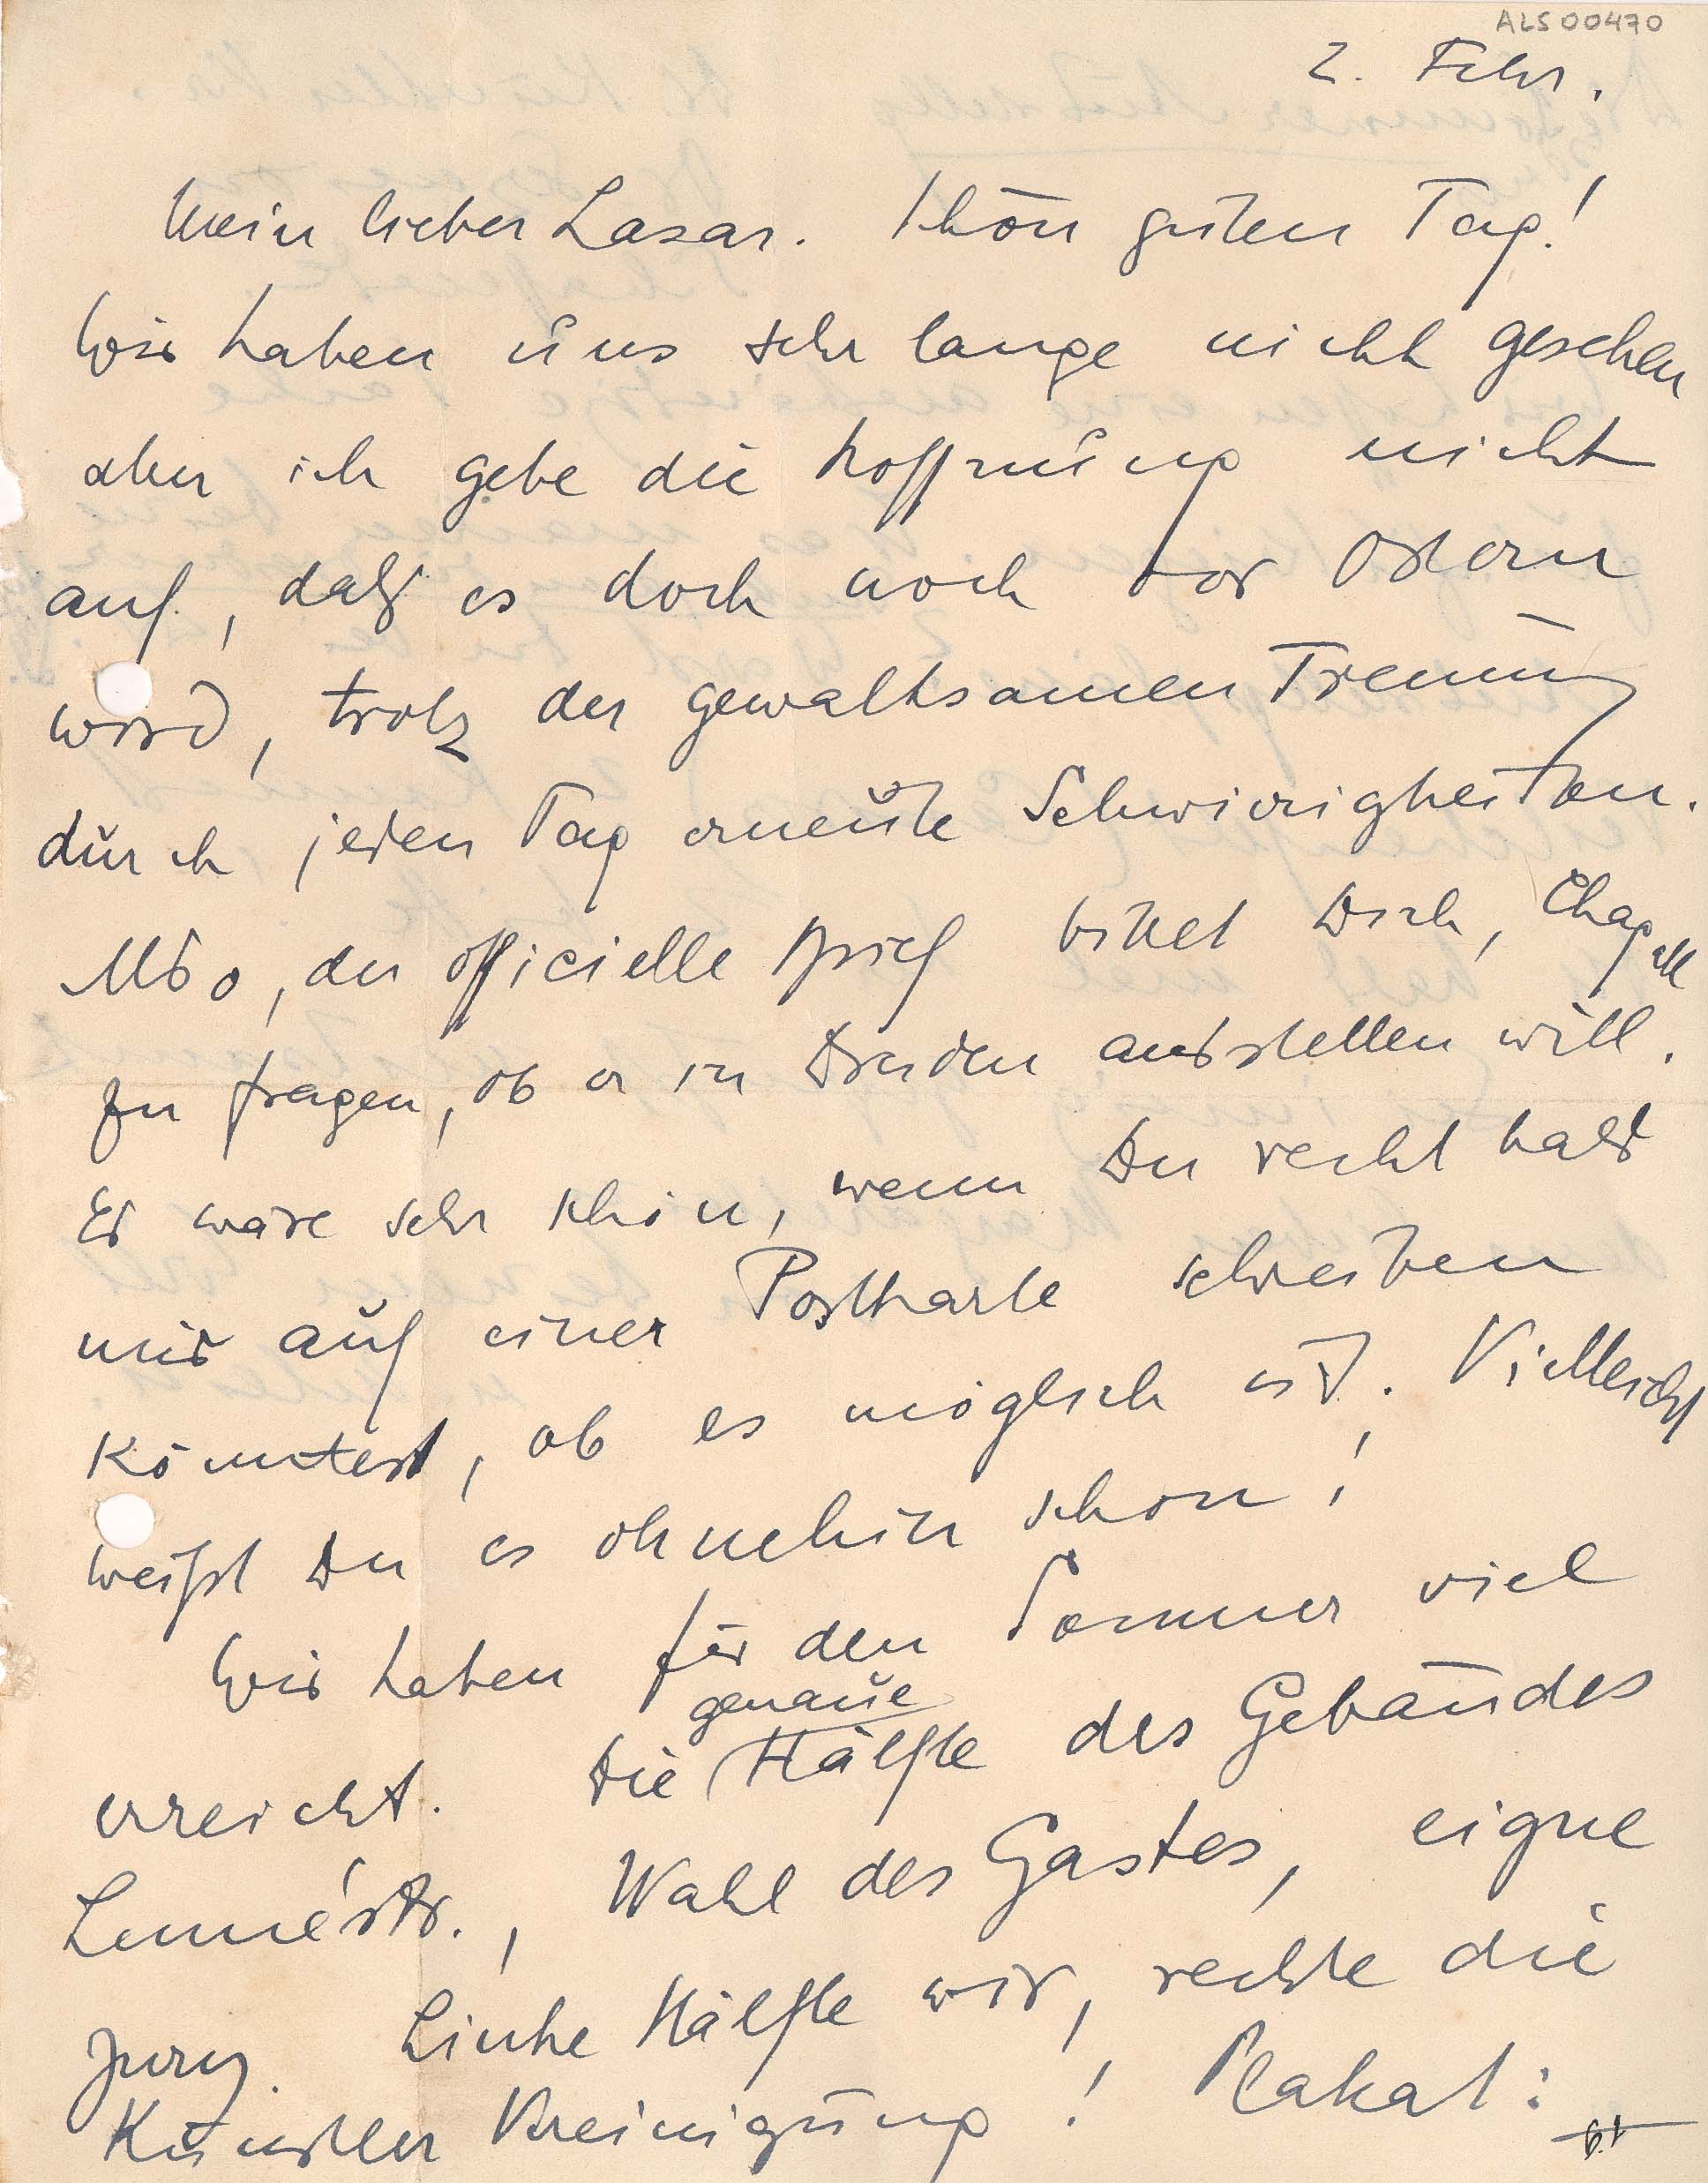 ALS 00470
2. Febr.
Mein lieber Lasar. Schön guten Tag!
Wir haben uns sehr lange nicht gesehen
aber ich gebe die Hoffnung nicht
auf, daß es doch noch vor Ostern
wird, trotz der gewaltsamen Trennung
durch jeden Tag erneute Schwierigkeiten.
Also, der officielle Brief bittet Dich, Chagall
zu fragen, ob er in Dresden ausstellen will.
Es wäre sehr schön, wenn Du recht bald
mir auf einer Postkarte schreiben
könntest, ob es möglich ist. Vielleicht
weißt Du es ohnehin schon!
Wir haben für den Sommer viel
genaue
erreicht. Die Hälfte des Gebäudes
Lennéstr., Wahl des Gastes, eigne
Jury. Linke Hälfte wir, rechte die
Künstler Vereinigung! Plakat: